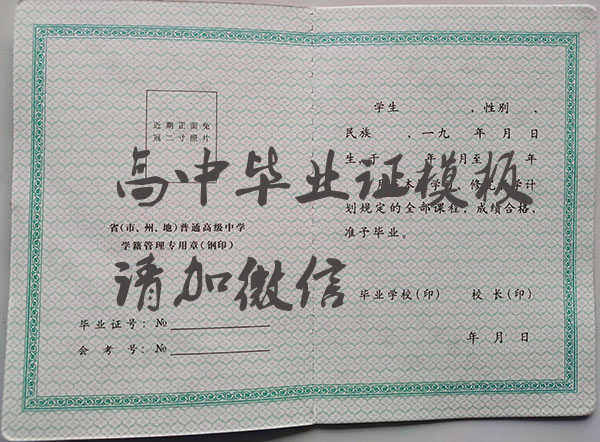 近期正面免
冠二寸照片
省(市、州、地)普通高级中学
学籍管理专用章(钢印)
毕业证号:№
会考号:№
学生 ,性别 、
民族 ,一九 年 月 日
生,于 年 月至 年
月 本 学 ,修 学计
划规定的全部课程,成绩合格,
准予毕业。
毕业学校(印) 校长(印)
年 月 日
高中毕业证模板
请加微信